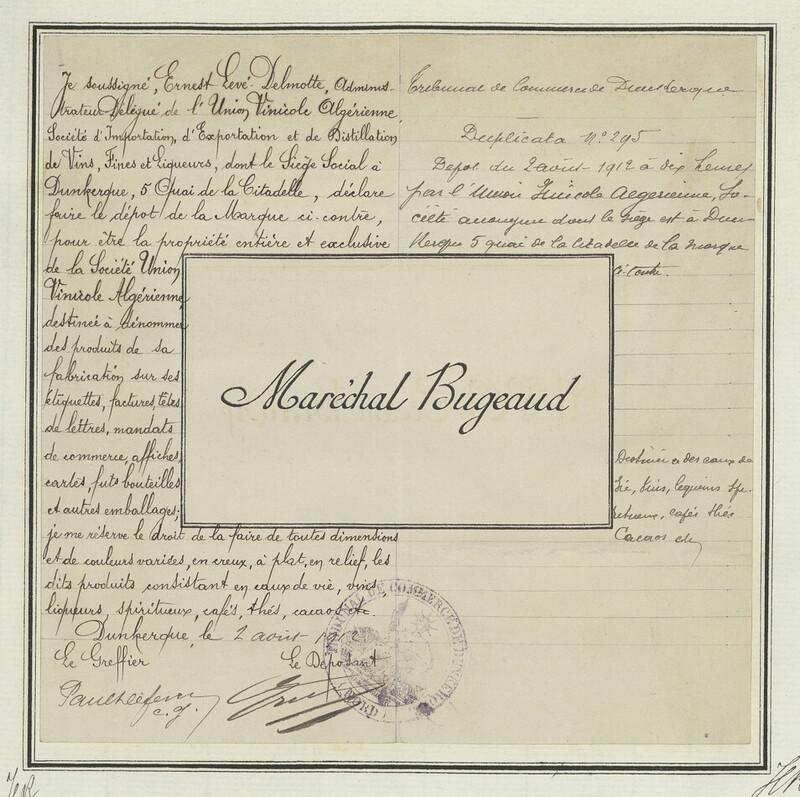 Je soussigné, Ernest Levé-Delmotte, Adminis-
trateur-Délégué de l'Union Vinicole Algérienne,
Société d'Importation, d'Exportation et de Distillation
de Vins, Fines et Liqueurs, dont le Siège Social à
Dunkerque, 5 Quai de la Citadelle, déclare
faire le dépôt de la Marque ci-contre,
pour être la propriété entière et exclusive
de la Société Union
Vinicole Algérienne,
destinée à dénommer
des produits de sa
fabrication sur ses
étiquettes, factures, têtes
de lettres, mandats
de commerce, affiches,
cartes, fûts bouteilles
et autres emballages;
je me réserve le droit de la faire de toutes dimensions
et de couleurs variées, en creux, à plat, en relief, les
dits produits consistant en eaux de vie, vins,
liqueurs, spiritueux, cafés, thés, cacaos etc.
Dunkerque, le 2 août 1912
Le Greffier Le Déposant
c. g.
Maréchal Bugeaud
Tribunal de Commerce de Dunkerque
Duplicata N° 295
Dépôt du 2 août 1912 à dix heures
par l'Union Vinicole Algérienne, So-
ciété anonyme dont le siège est à Dun-
kerque 5 quai de la Citadelle de la marque
ci-contre.
Destinée à des eaux de
vie, vins, liqueurs spi-
ritueux, cafés thés
Cacaos etc
TRIBUNAL DE COMMERCE DE DUNKERQUE
(NORD)